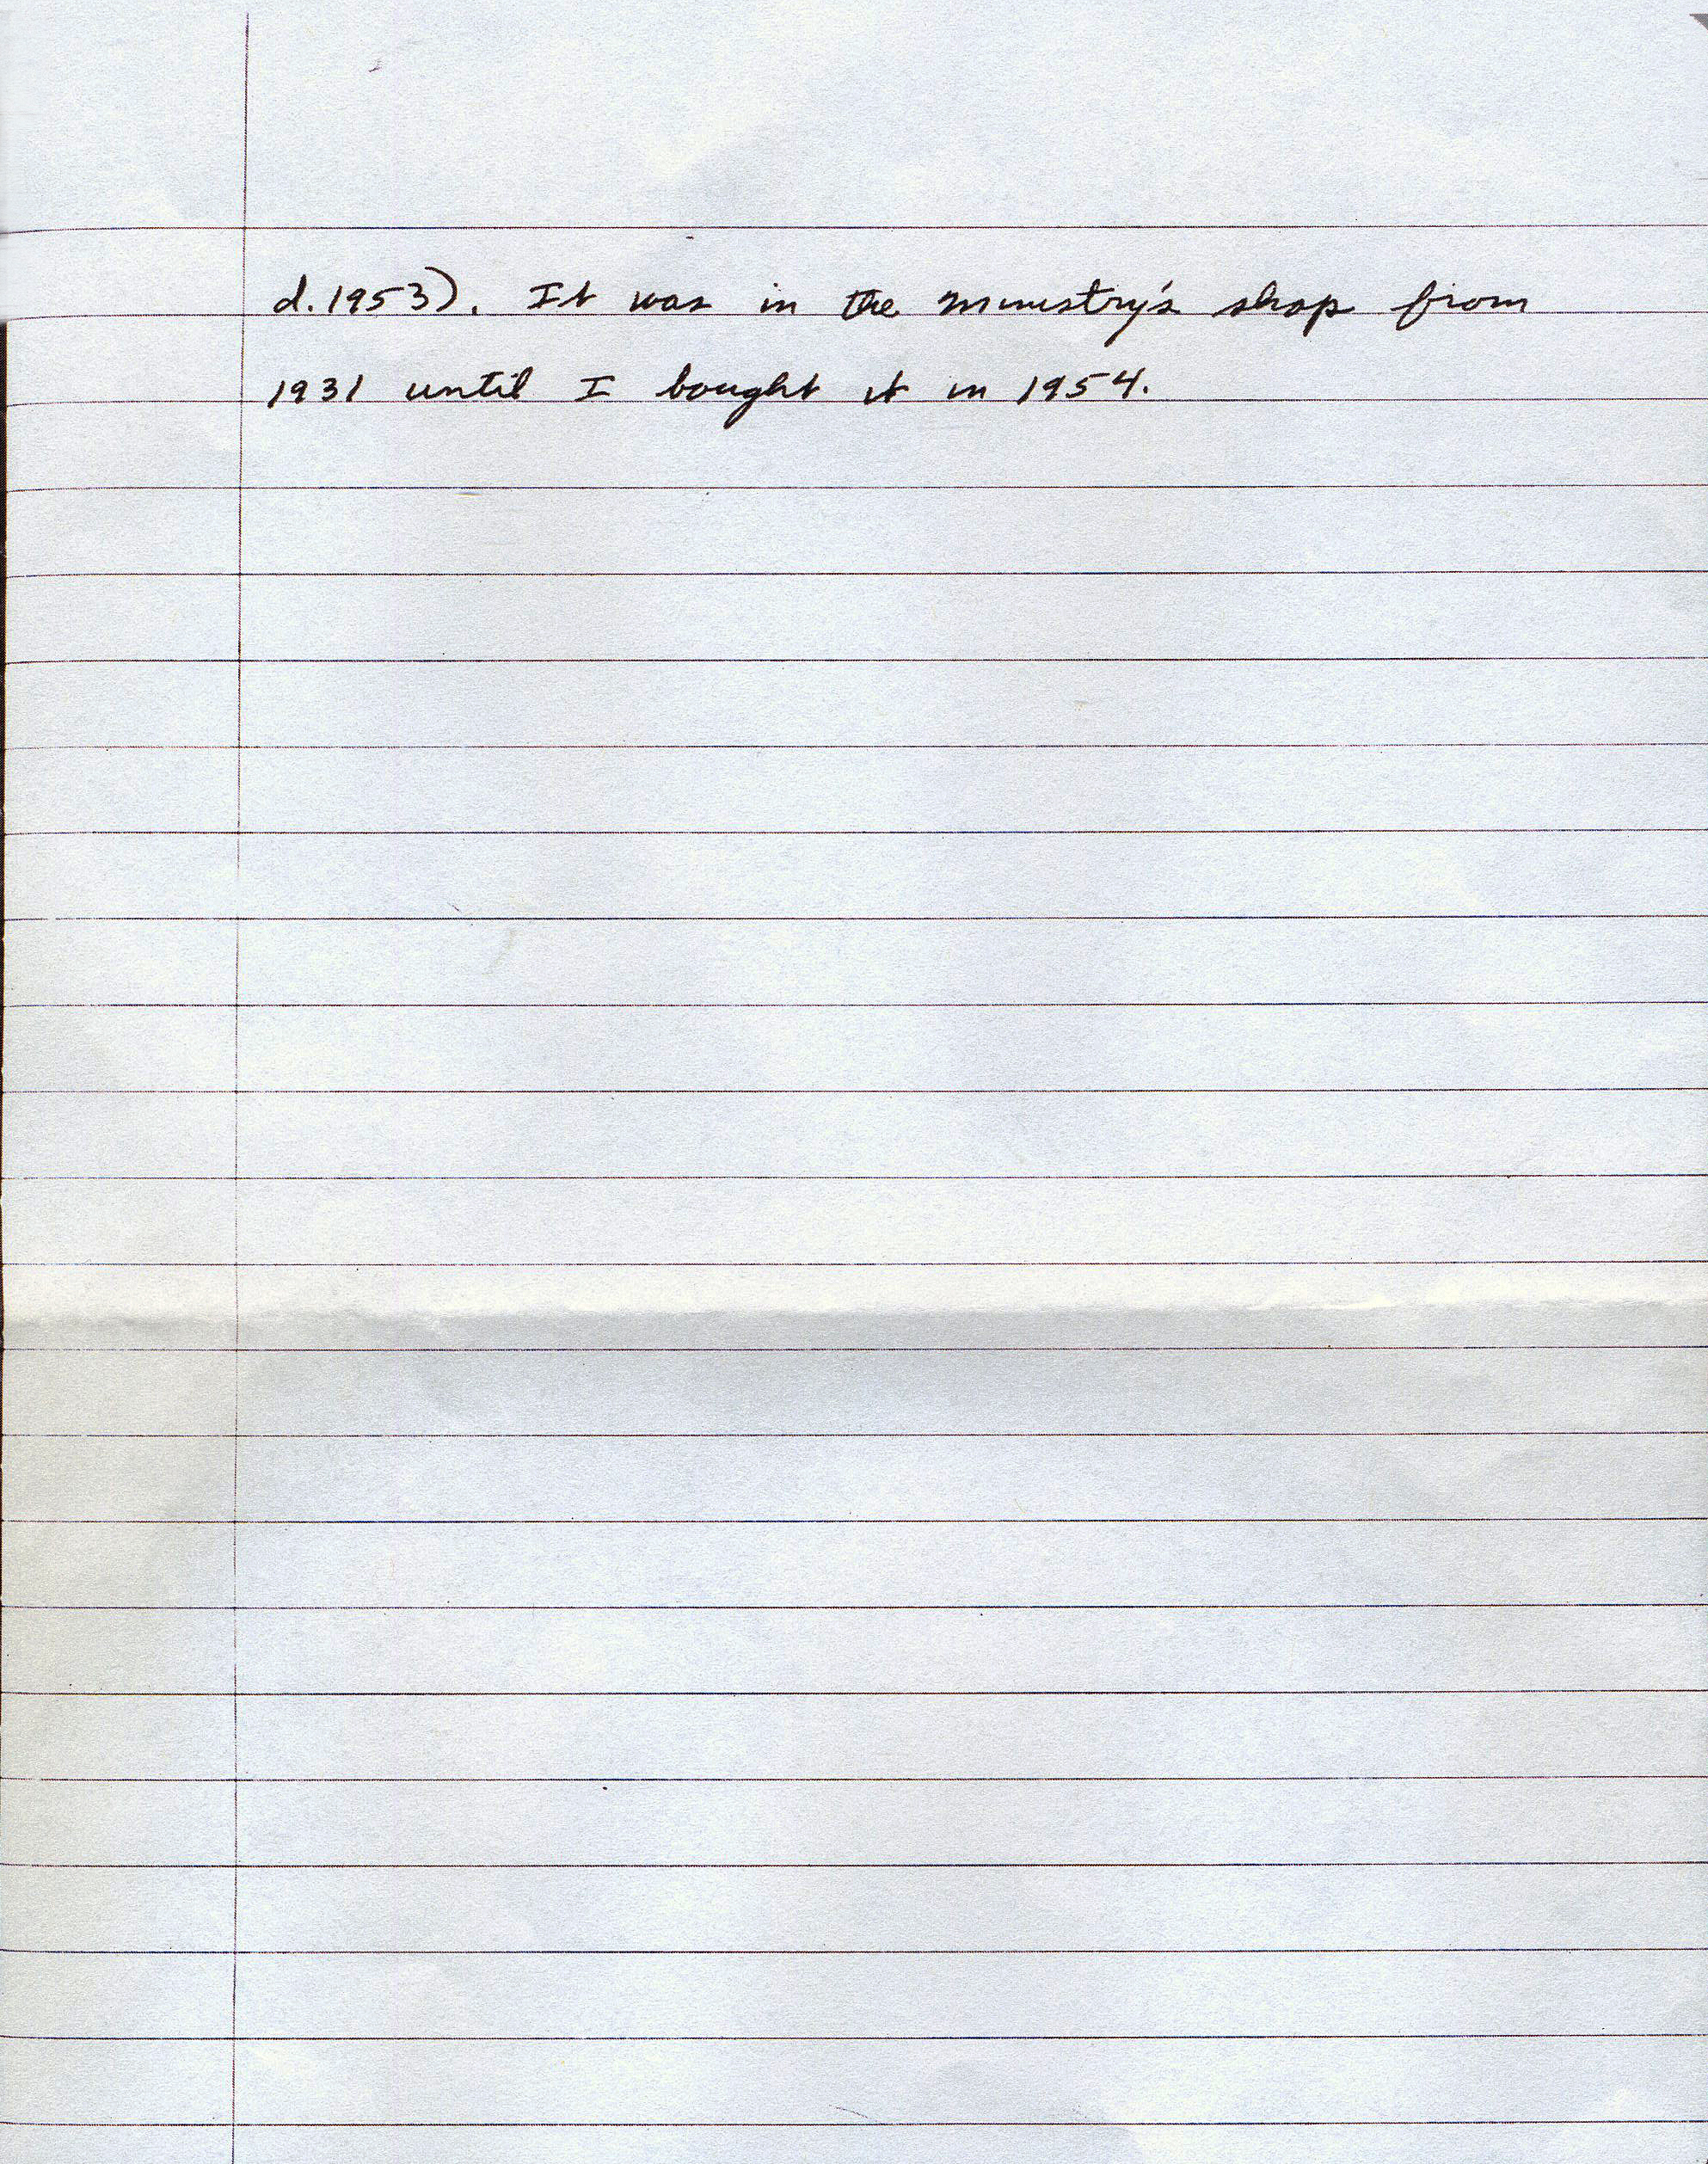 d. 1953). It was in the ministry's shop from
1931 until I bought it in 1954.